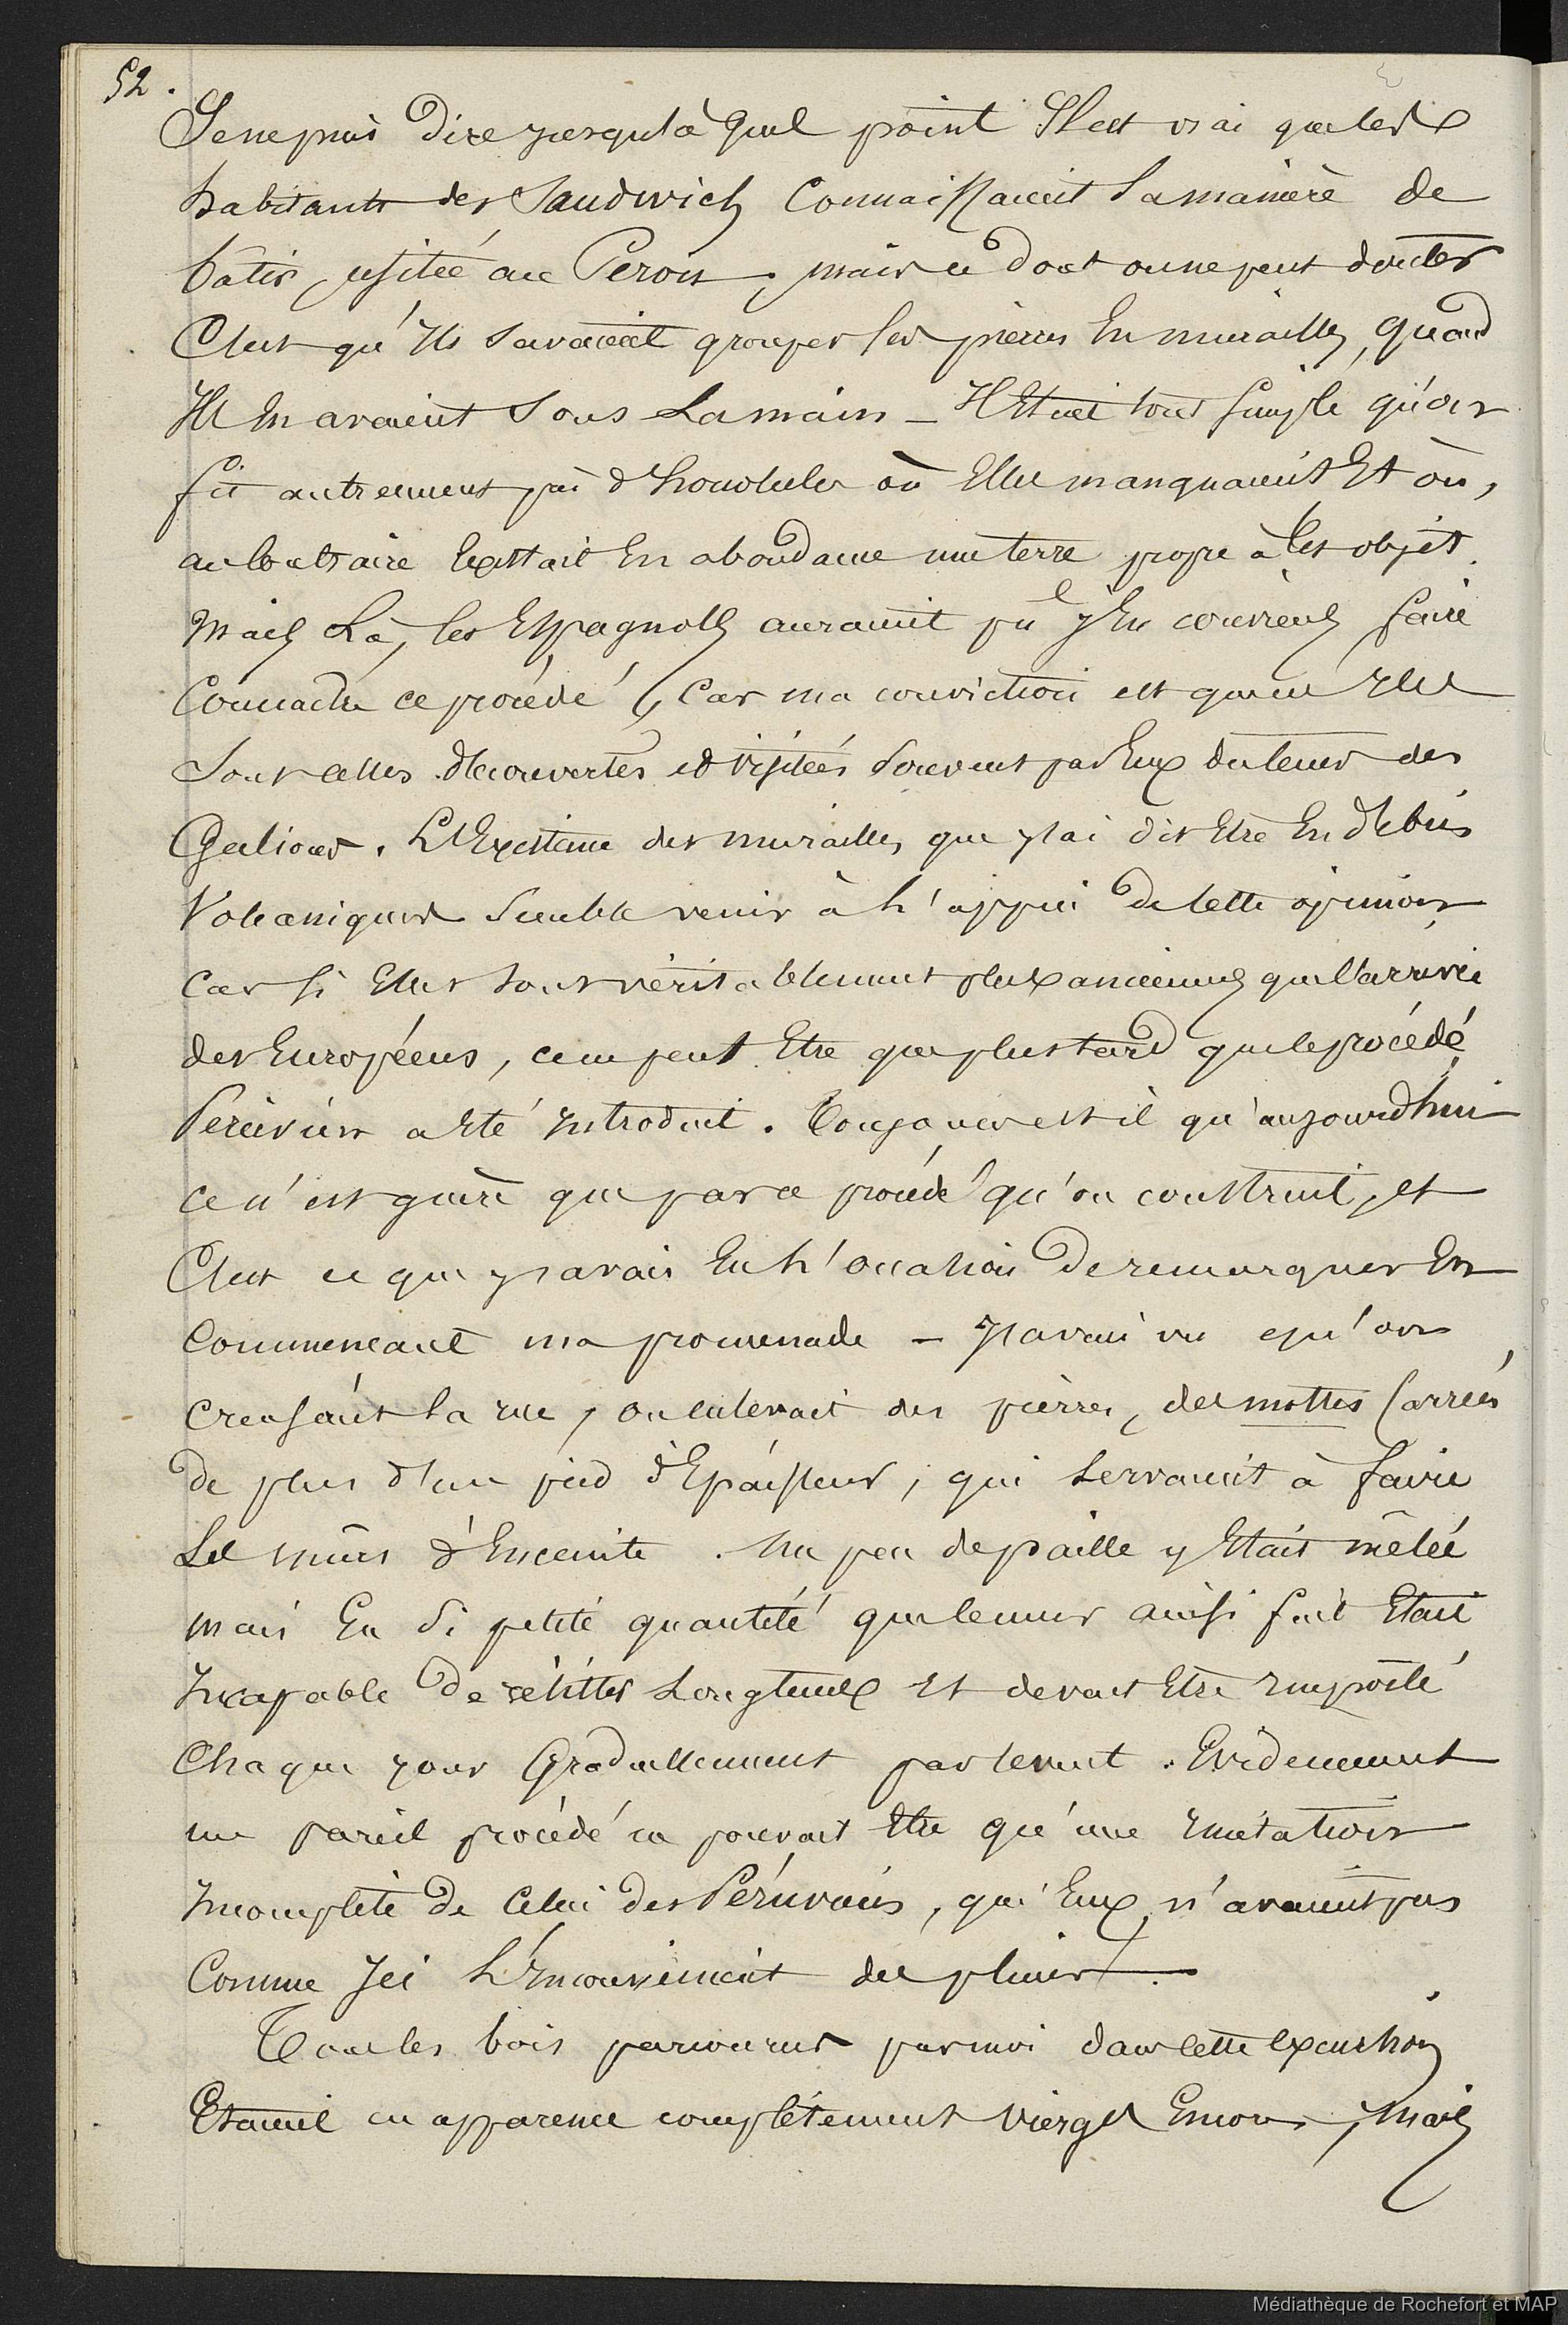 52.
Je ne puis dire jusqu'à quel point Il est vrai que les
habitants des Sandwich connaissaient la manière de
bâtir, usitée au Perou, mais ce dont on ne peut douter
C'est qu'Ils savaient grouper les pierres En murailles, quand
Ils En avaient sous La main – Il Etait tout simple qu'on
fit autrement près d'honolulu où Elles manquaient Et où,
au Contraire Existait En abondance une terre propre à Cet objet.
Mais Là, les Espagnols auraient pu y En couvrent faire
Connaitre ce procédé, Car ma conviction est que ces Iles
Sont celles découvertes et visitées souvent par Eux du tems des
Galions. L'Existence des murailles que j'ai dit Etre En débris
Volcaniques semble venir à L'appui de Cette opinion,
Car si Elles sont véritablement plus anciennes que l'arrivée
des Européens, ce ne peut Etre que plus tard que le procédé
Péruvien a Eté Introduit. Toujours est il qu'aujourd'hui
ce n'est guère que par ce procédé qu'on construit, et
C'est ce que j'avais Eu L'occasion de remarquer En
Commencant ma promenade – J'avais vu qu'on
creusant la rue, on enlevait des pierres, des mottes Carrées
de plus d'un pied d'Epaisseur, qui servaient à faire
Les murs d'Enceinte. Un peu de paille y Etait mêlée
mais En si petite quantité que le mur ainsi fait Etait
Incapable de résister Longtems et devait Etre Emporté
Chaque jour Graduellement par le vent. Evidemment
un pareil procédé ne pouvait Etre qu'une Imitation
Incomplète de Celui des Péruviens, qui Eux, n'avaient pas
Comme Ici L'Inconvénient des pluies.
Tous les bois parcourus par moi dans Cette Excursion
Etaient en apparence complétement vierges Encore, Mais
Médiathèque de Rochefort et MAP